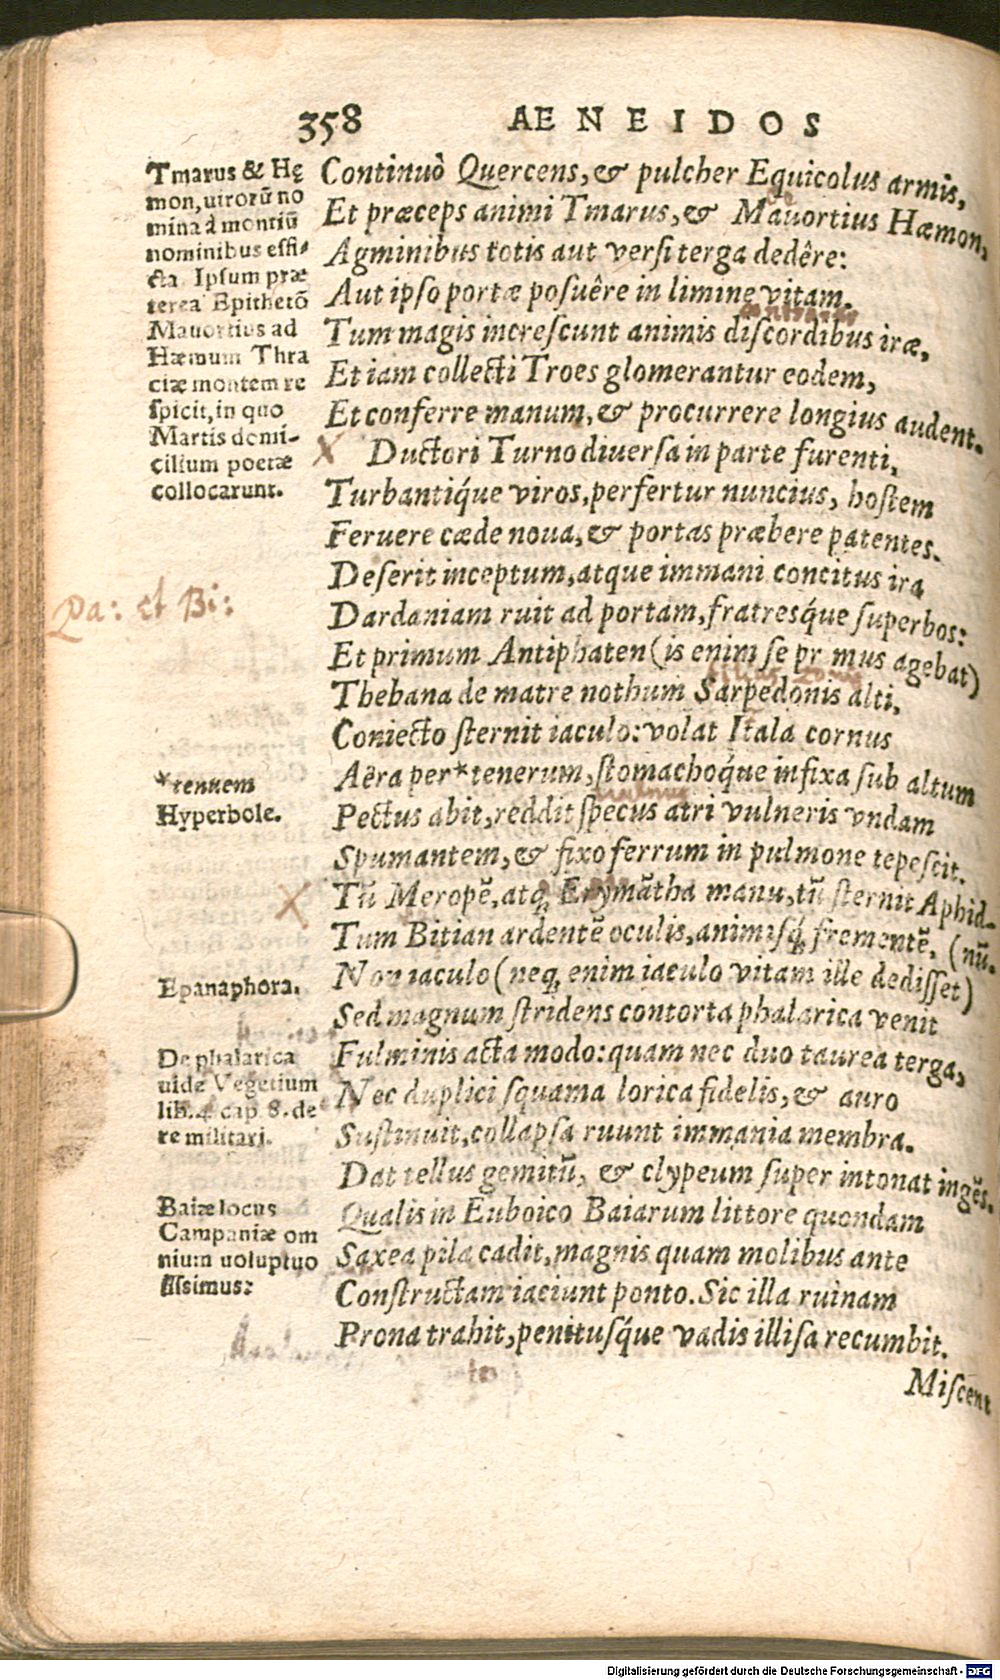 358 AENEIDOS
Tmarus & Hę
mon, utrorū no
mina à montiū
nominibus effi-
cta. Ipsum præ
terea Epithetō
Mauortius ad
Hæmum Thra
ciæ montem re
spicit, in quo
Martis domi-
cilium poetæ
collocarunt.
Pa: et Bi:
*tenuem
Hyperbole.
Epanaphora.
De phalarica
uide Vegetium
lib. 4. cap. 8. de
re militari.
Baiæ locus
Campaniæ om
nium uoluptuo
sissimus:
Continuò Quercens, & pulcher Equicolus armis,
Et præceps animi Tmarus, & Mauortius Hæmon,
Agminibus totis aut versi terga dedêre:
Aut ipso portæ posuêre in limine vitam.
Tum magis increscunt animis discordibus iræ,
Et iam collecti Troes glomerantur eodem,
Et conferre manum, & procurrere longius audent.
X Ductori Turno diuersa in parte furenti,
Turbantiq́ue viros, perfertur nuncius, hostem
Feruere cæde noua, & portas præbere patentes.
Deserit inceptum, atque immani concitus ira
Dardaniam ruit ad portam, fratresq́ue superbos:
Et primum Antiphaten (is enim se pr mus agebat)
Thebana de matre nothum Sarpedonis alti,
Coniecto sternit iaculo: volat Itala cornus
Aëra per *tenerum, stomachoq́ue infixa sub altum
Pectus abit, reddit specus atri vulneris vndam
Spumantem, & fixo ferrum in pulmone tepescit.
X Tū Meropē, atq; Erymātha manu, tū sternit Aphid-
Tum Bitian ardentē oculis, animisq́; frementē, (nū.
Non iaculo (neq; enim iaculo vitam ille dedisset)
Sed magnum stridens contorta phalarica venit
Fulminis acta modo: quam nec duo taurea terga,
Nec duplici squama lorica fidelis, & auro
Sustinuit, collapsa ruunt immania membra.
Dat tellus gemitū, & clypeum super intonat ingēs.
Qualis in Euboico Baiarum littore quondam
Saxea pila cadit, magnis quam molibus ante
Constructam iaciunt ponto. Sic illa ruinam
Prona trahit, penitusq́ue vadis illisa recumbit.
Miscent
Digitalisierung gefördert durch die Deutsche Forschungsgemeinschaft - DFG